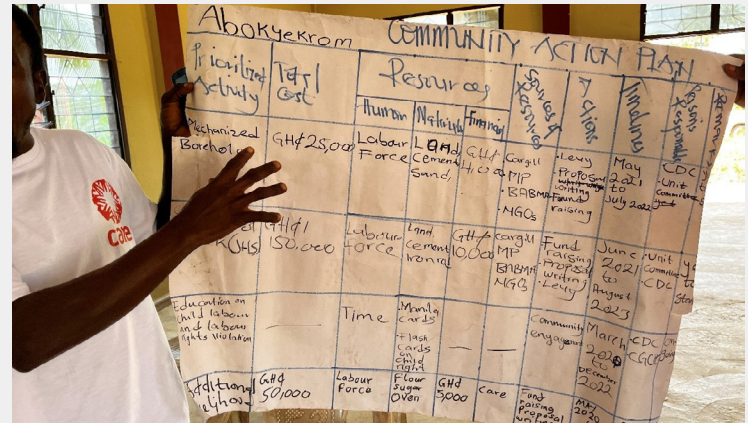 Abokyekrom COMMUNITY ACTION PLAN
Prioritized Activity
Total Cost
Resources
Human
Financial
Sources of Resources
Actions
Timelines
Persons Responsible
Mechanized Borehole
GH¢25,000
Labour Force
Land, cement Sand,
GH¢
Cargill
MIP
BABMA
NGOs
Levy
Proposal writing
Fund raising
May 2021 to July 2022
CDC
Unit Committee
GH¢1 150,000
Labour force
Land, cement
GH¢ 10,000
cargill
MP
BABMA
NGO
Fund raising
Proposal writing
Levy
June 2021 to August 2023
Unit Committee
CDC
Education on child labour and labour rights violation
Time
Manila cards
Flash cards on child right
Community engagement
March
to December 2022
CDC
GH¢ 50,000
Labour force
Flour sugar Oven
GH¢ 5,000
Care
Fund raising Proposal
May 2020
care